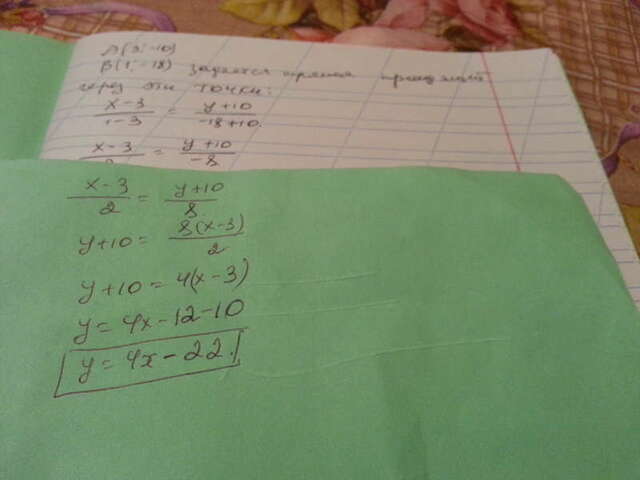 A(3;-10)
B(1;-18) задается прямая проходящей
через эти точки:
x-3/1-3 = y+10/-18+10.
x-3/2 = y+10/-8
x-3/2 = y+10/8
y+10 = 8(x-3)/2
y+10 = 4(x-3)
y = 4x-12-10
y = 4x-22.